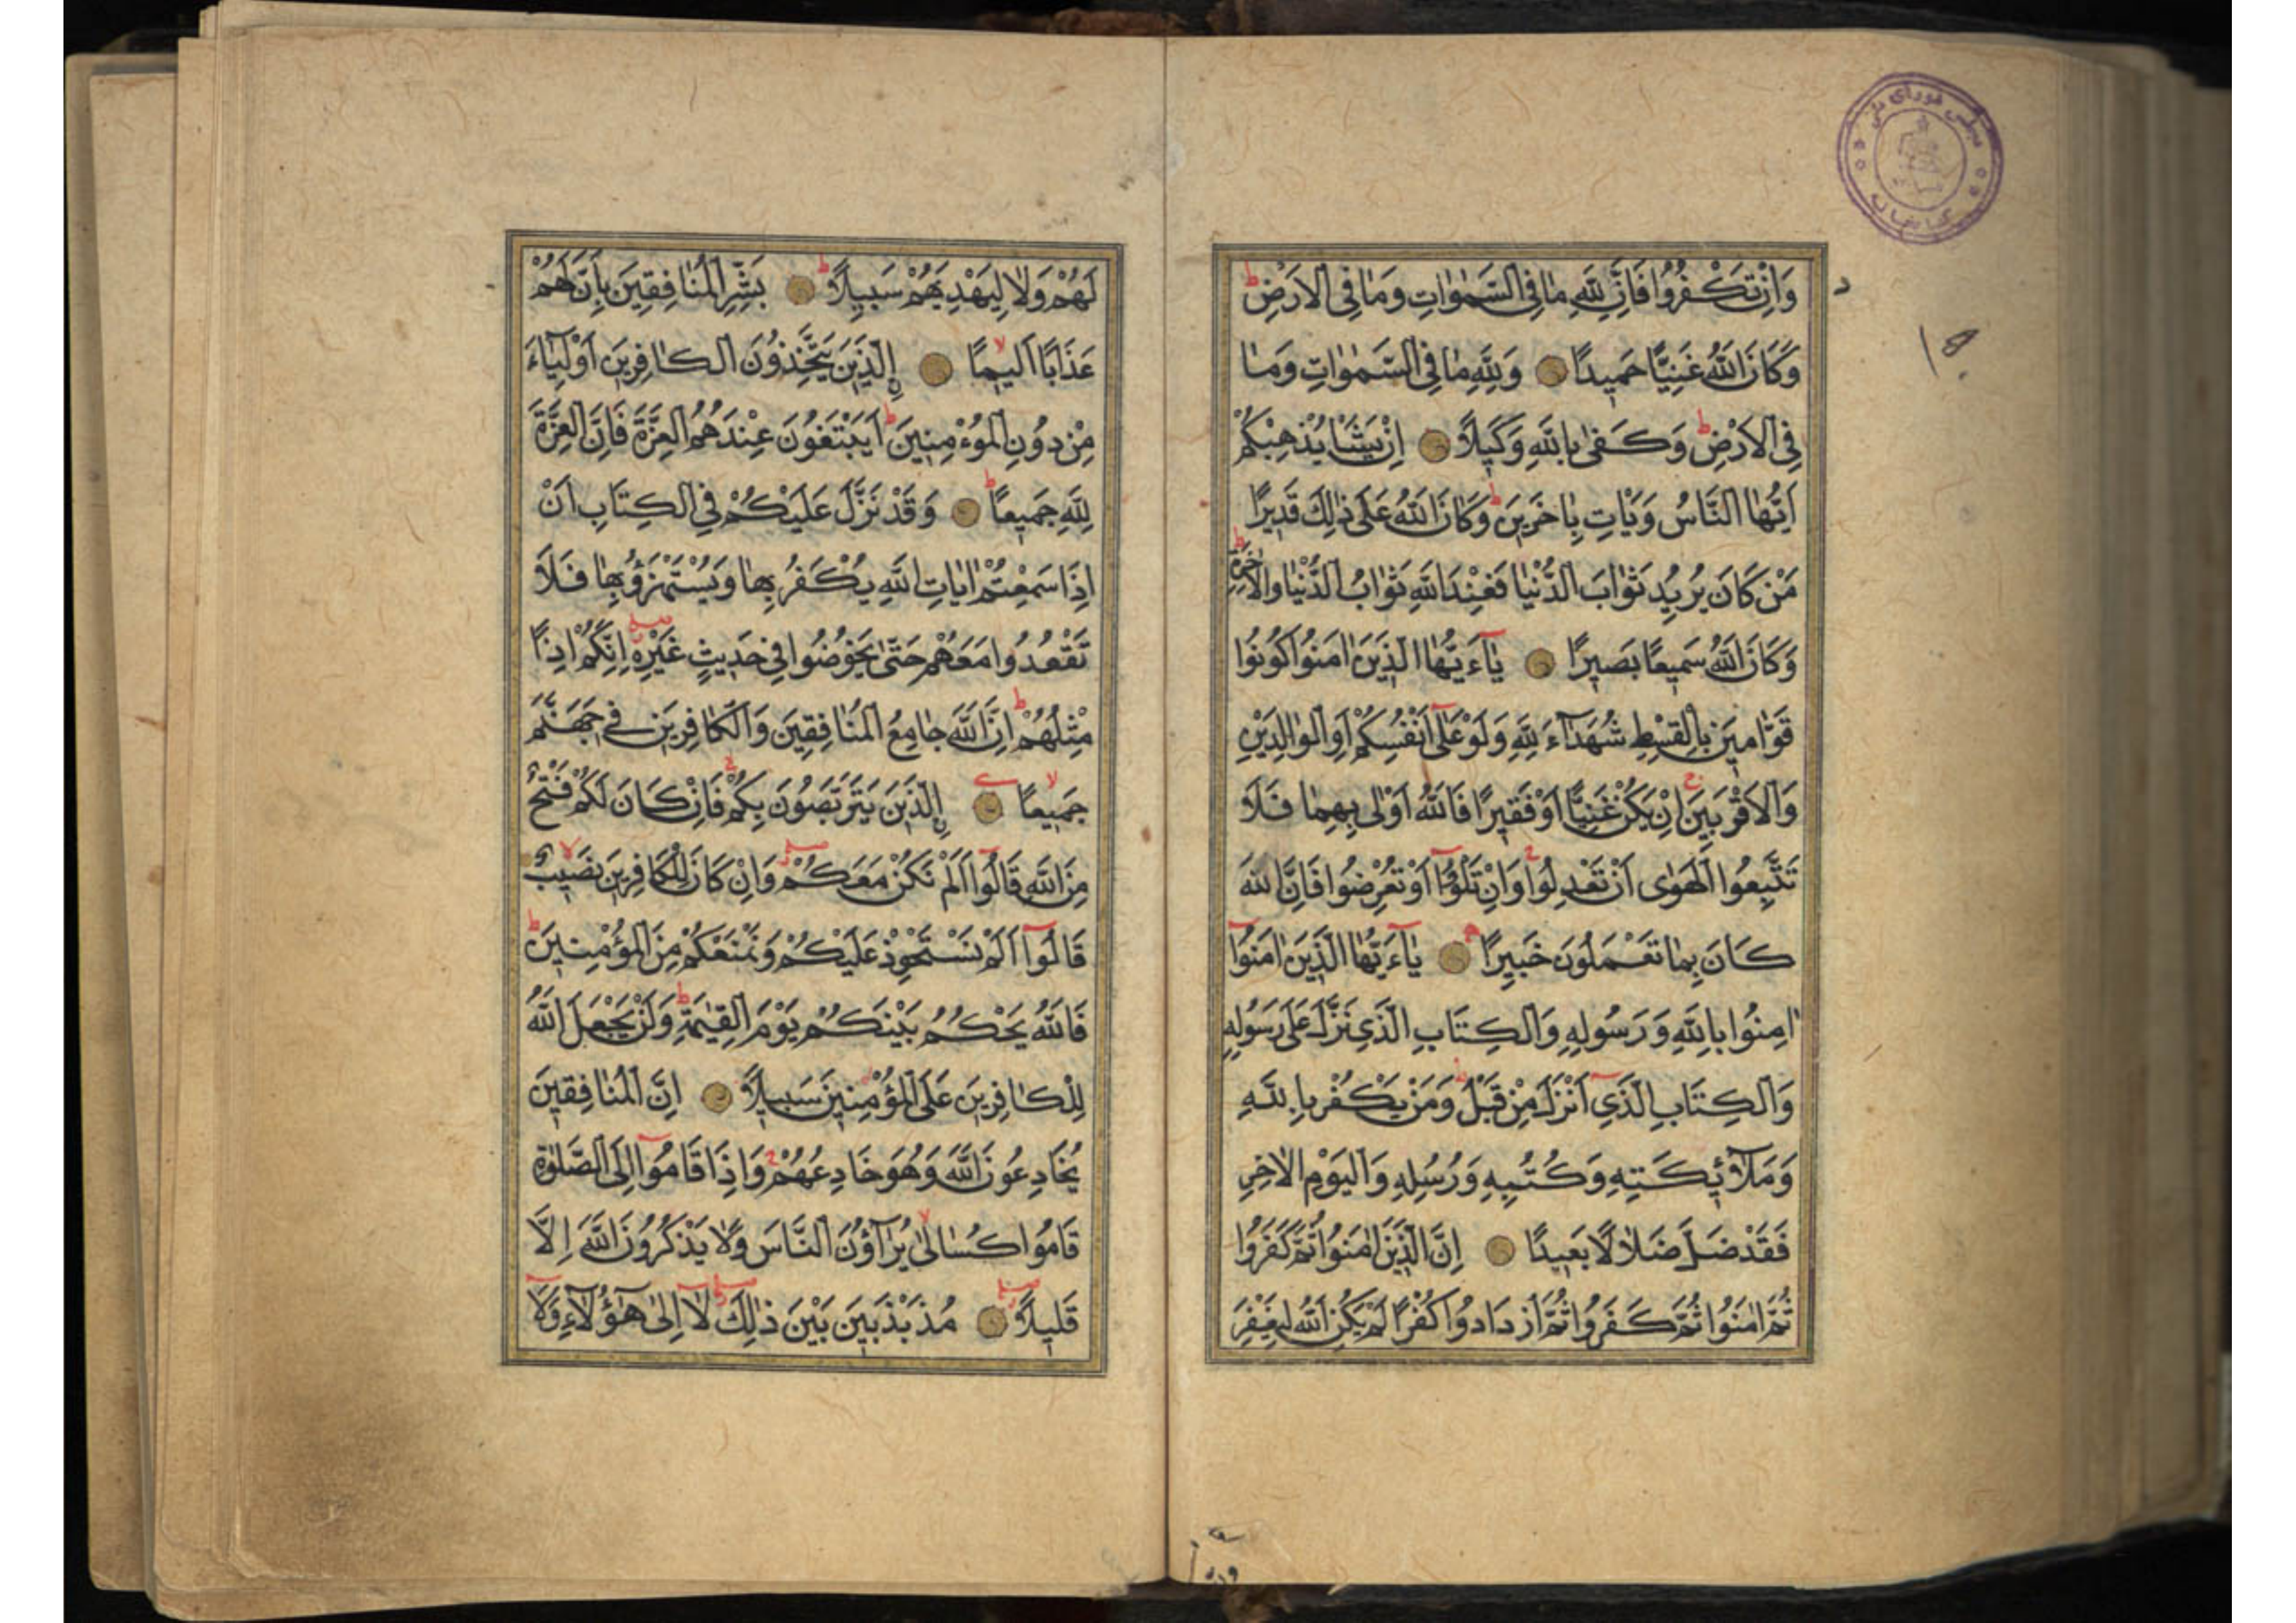 وَاِنْ تَكْفُرُوا فَاِنَّ لِلّٰهِ مَا فِى السَّمٰوَاتِ وَمَا فِى الْاَرْضِ ط
وَكَانَ اللّٰهُ غَنِيًّا حَمِيدًا وَلِلّٰهِ مَا فِى السَّمٰوَاتِ وَمَا
فِى الْاَرْضِ ط وَكَفٰى بِاللّٰهِ وَكِيلًا اِنْ يَشَأْ يُذْهِبْكُمْ
اَيُّهَا النَّاسُ وَيَاْتِ بِاٰخَرِينَ ط وَكَانَ اللّٰهُ عَلٰى ذٰلِكَ قَدِيرًا
مَنْ كَانَ يُرِيدُ ثَوَابَ الدُّنْيَا فَعِنْدَ اللّٰهِ ثَوَابُ الدُّنْيَا وَالْاٰخِرَةِ ط
وَكَانَ اللّٰهُ سَمِيعًا بَصِيرًا يَآءَيُّهَا الَّذِينَ اٰمَنُوا كُونُوا
قَوَّامِينَ بِالْقِسْطِ شُهَدَآءَ لِلّٰهِ وَلَوْ عَلٰٓى اَنْفُسِكُمْ اَوِ الْوَالِدَيْنِ
وَالْاَقْرَبِينَ ج اِنْ يَكُنْ غَنِيًّا اَوْ فَقِيرًا فَاللّٰهُ اَوْلٰى بِهِمَا فَلَا
تَتَّبِعُوا الْهَوٰى اَنْ تَعْدِلُوا ج وَاِنْ تَلْوُٓا اَوْ تُعْرِضُوا فَاِنَّ اللّٰهَ
كَانَ بِمَا تَعْمَلُونَ خَبِيرًا يَآءَيُّهَا الَّذِينَ اٰمَنُوٓا
اٰمِنُوا بِاللّٰهِ وَرَسُولِهِ وَالْكِتَابِ الَّذِى نَزَّلَ عَلٰى رَسُولِهِ
وَالْكِتَابِ الَّذِىٓ اَنْزَلَ مِنْ قَبْلُ ط وَمَنْ يَكْفُرْ بِاللّٰهِ
وَمَلَآئِكَتِهِ وَكُتُبِهِ وَرُسُلِهِ وَالْيَوْمِ الْاٰخِرِ
فَقَدْ ضَلَّ ضَلَالًا بَعِيدًا اِنَّ الَّذِينَ اٰمَنُوا ثُمَّ كَفَرُوا
ثُمَّ اٰمَنُوا ثُمَّ كَفَرُوا ثُمَّ ازْدَادُوا كُفْرًا لَمْ يَكُنِ اللّٰهُ لِيَغْفِرَ
لَهُمْ وَلَا لِيَهْدِيَهُمْ سَبِيلًا ط بَشِّرِ الْمُنَافِقِينَ بِاَنَّ لَهُمْ
عَذَابًا اَلِيمًا لا اِلَّذِينَ يَتَّخِذُونَ الْكَافِرِينَ اَوْلِيَاءَ
مِنْ دُونِ الْمُؤْمِنِينَ ط اَيَبْتَغُونَ عِنْدَهُمُ الْعِزَّةَ فَاِنَّ الْعِزَّةَ
لِلّٰهِ جَمِيعًا ط وَقَدْ نَزَّلَ عَلَيْكُمْ فِى الْكِتَابِ اَنْ
اِذَا سَمِعْتُمْ اٰيَاتِ اللّٰهِ يُكْفَرُ بِهَا وَيُسْتَهْزَؤُ بِهَا فَلَا
تَقْعُدُوا مَعَهُمْ حَتّٰى يَخُوضُوا فِى حَدِيثٍ غَيْرِهِ صلے اِنَّكُمْ اِذًا
مِثْلُهُمْ ط اِنَّ اللّٰهَ جَامِعُ الْمُنَافِقِينَ وَالْكَافِرِينَ فِى جَهَنَّمَ
جَمِيعًا لا اِلَّذِينَ يَتَرَبَّصُونَ بِكُمْ ج فَاِنْ كَانَ لَكُمْ فَتْحٌ
مِنَ اللّٰهِ قَالُوٓا اَلَمْ نَكُنْ مَعَكُمْ صلے وَاِنْ كَانَ لِلْكَافِرِينَ نَصِيبٌ لا
قَالُوٓا اَلَمْ نَسْتَحْوِذْ عَلَيْكُمْ وَنَمْنَعْكُمْ مِنَ الْمُؤْمِنِينَ ط
فَاللّٰهُ يَحْكُمُ بَيْنَكُمْ يَوْمَ الْقِيٰمَةِ ط وَلَنْ يَجْعَلَ اللّٰهُ
لِلْكَافِرِينَ عَلَى الْمُؤْمِنِينَ سَبِيلًا اِنَّ الْمُنَافِقِينَ
يُخَادِعُونَ اللّٰهَ وَهُوَ خَادِعُهُمْ ج وَاِذَا قَامُوٓا اِلَى الصَّلٰوةِ
قَامُوا كُسَالٰى لا يُرَآؤُنَ النَّاسَ وَلَا يَذْكُرُونَ اللّٰهَ اِلَّا
قَلِيلًا صلے مُذَبْذَبِينَ بَيْنَ ذٰلِكَ صلے لَآ اِلٰى هٰٓؤُلَآءِ وَلَآ